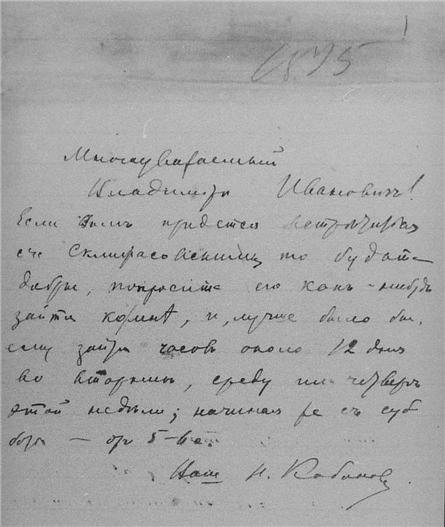 Многоуважаемый
Владимиръ Ивановичъ!
Если Вамъ придется
съ Склифасовскимъ, то будьте
добры, попросите его какъ-нибудь
зайти ко мнѣ, и, лучше было бы,
ему зайти часовъ около 12 дня
во вторникъ, среду или четвергъ
этой недѣли; начиная же съ суб
боты — отъ 5-6 в.
Вашъ Н. Кабановъ